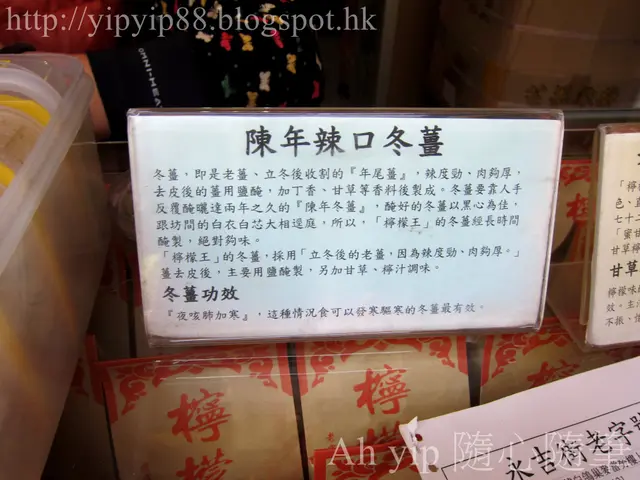 http://yipyip88.blogspot.hk
陳年辣口冬薑
冬薑，即是老薑、立冬後收割的『年尾薑』，辣度勁、肉夠厚，
去皮後的薑用鹽醃，加丁香、甘草等香料後製成。冬薑要靠人手
反覆醃曬達兩年之久的『陳年冬薑』，醃好的冬薑以黑心為佳，
跟坊間的白衣白芯大相逕庭，所以，「檸檬王」的冬薑經長時間
醃製，絕對夠味。
「檸檬王」的冬薑，採用「立冬後的老薑，因為辣度勁、肉夠厚。」
薑去皮後，主要用鹽醃製，另加甘草、檸汁調味。
冬薑功效
『夜咳肺加寒』，這種情況食可以發寒驅寒的冬薑最有效。
「檸
色、直
七十二
「蜜甘
甘草檸
甘草
檸檬味
效。生
不振、
檸
檬
檸
檬
檸
檬
永吉街老字號
Ah yip 隨心隨筆